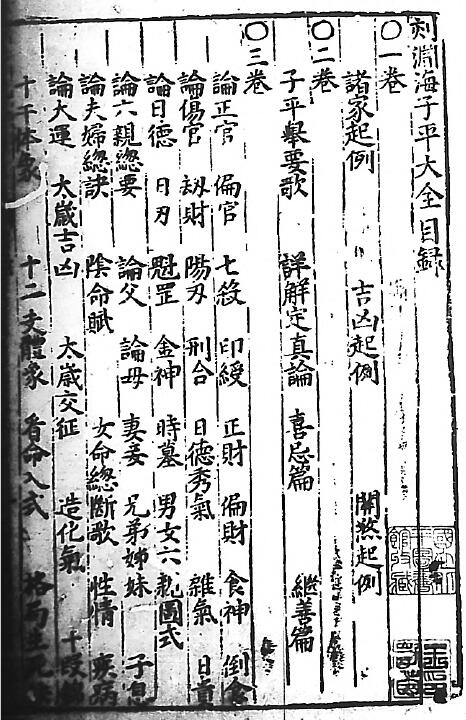 刻淵海子平大全目録
〇一卷
諸家起例 吉凶起例 關煞起例
〇二卷
子平舉要歌 詳解定真論 喜忌篇 継善篇
〇三卷
論正官 偏官 七殺 印綬 正財 偏財 食神 倒食
論傷官 刼財 陽刃 刑合 日德秀氣 雜氣 日貴
論日德 日刃 魁罡 金神 時墓 男女六親圖式
論六親總要 論父 論母 妻妾 兄弟姊妹 子息
論夫婦緫訣 陰命賦 女命緫斷歌 性情 疾病
論大運 太歲吉凶 太歲交征 造化氣 十
十干体象 十二支體象 看命入式 格局生死
國立北平圖書館收藏